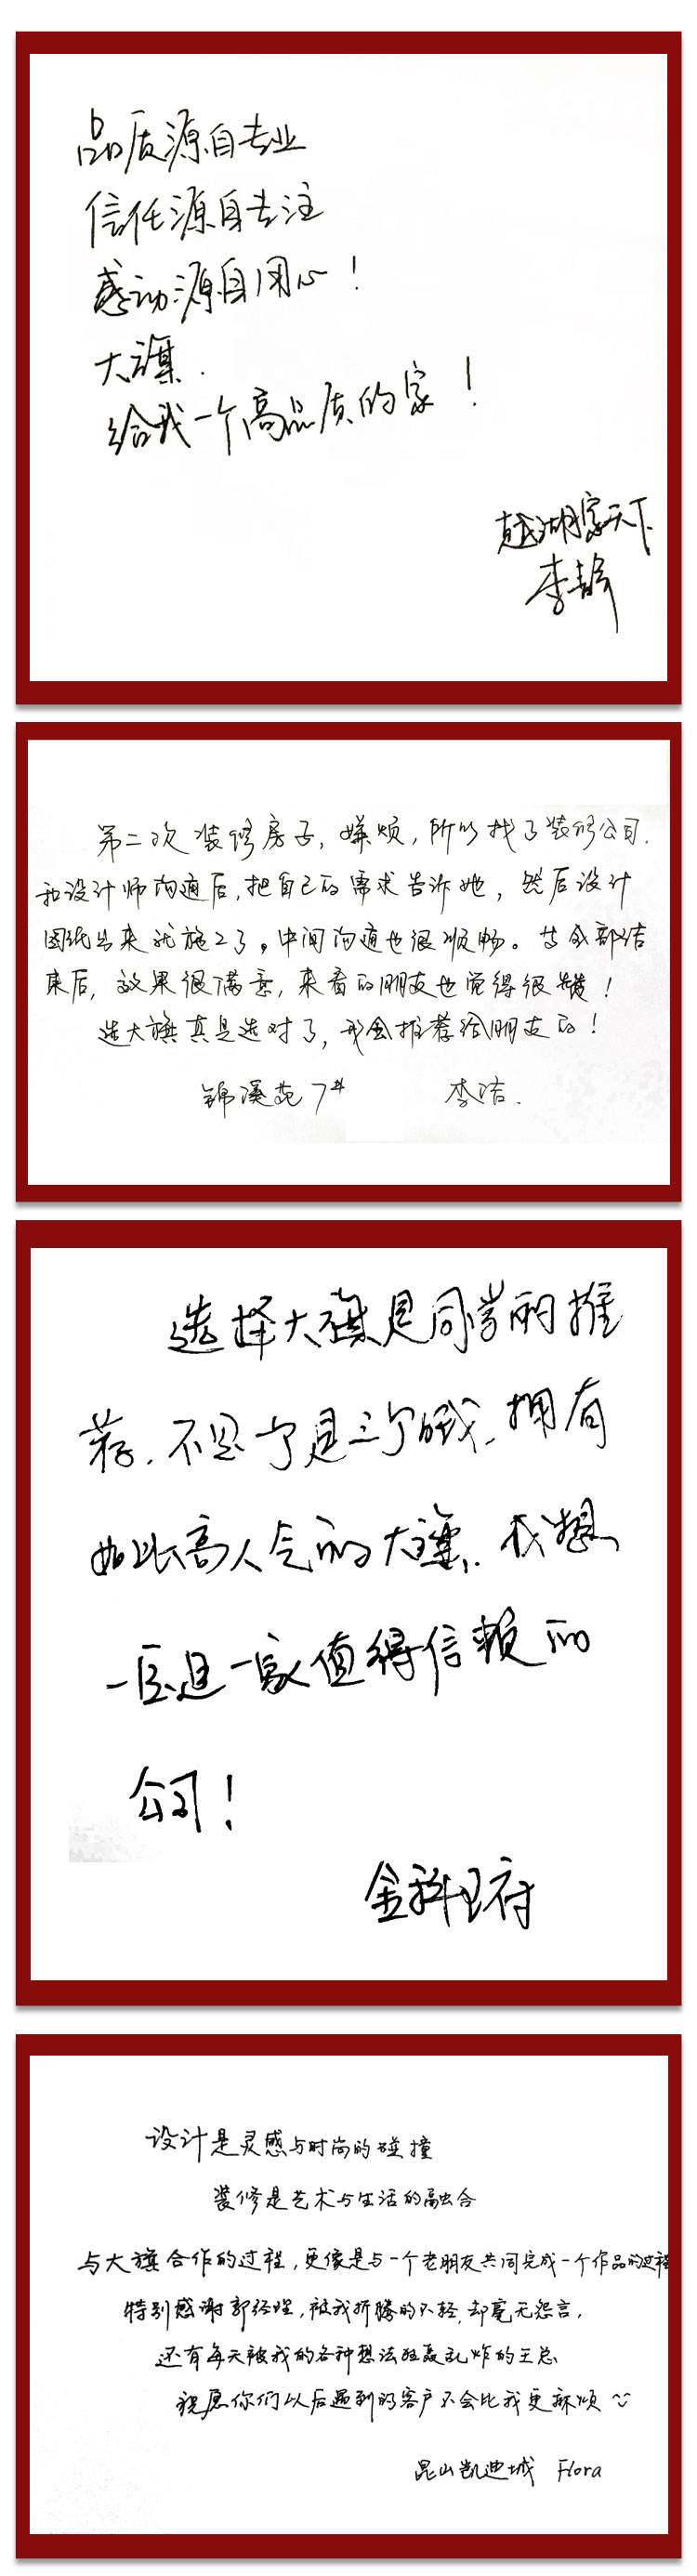 品质源自专业
信任源自专注
感动源自用心！
大旗.
给我一个高品质的家！
越湖家天下
李静
第二次装修房子，嫌烦，所以找了装修公司.
和设计师沟通后，把自己的需求告诉她，然后设计
图纸出来就施工了。中间沟通也很顺畅。当全部结
束后，效果很满意，来看的朋友也觉得很赞！
选大旗真是选对了，我会推荐给朋友的！
锦溪苑7# 李洁.
选择大旗是同学的推
荐.
拥有
如此高人气的大旗.我想
一定是一家值得信赖的
公司！
金科王府
设计是灵感与时尚的碰撞
装修是艺术与生活的融合
与大旗合作的过程，更像是与一个老朋友共同完成一个作品的过程
特别感谢郭经理，被我折腾的不轻，却毫无怨言，
还有每天被我的各种想法狂轰乱炸的王总
祝愿你们以后遇到的客户不会比我更麻烦
昆山凯迪城 Flora